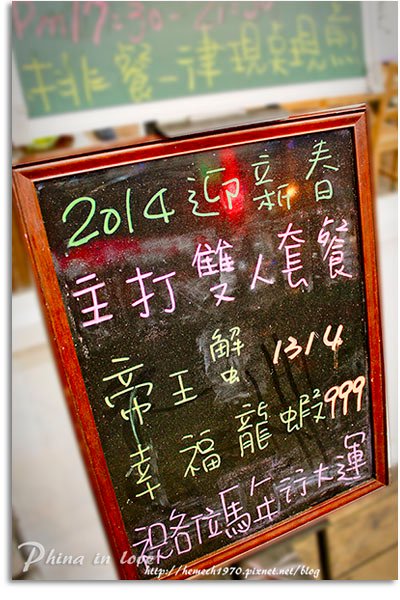 Pm17:30-21
排餐一律現点現煎
2014 迎新春
主打雙人套餐
帝王蟹 1314
幸福龍蝦 999
祝各位馬年行大運
Phina in love
http://hemech1970.pixnet.net/blog